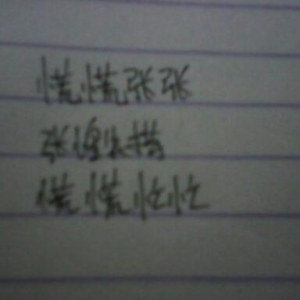 慌慌张张
张惶失措
慌慌忙忙